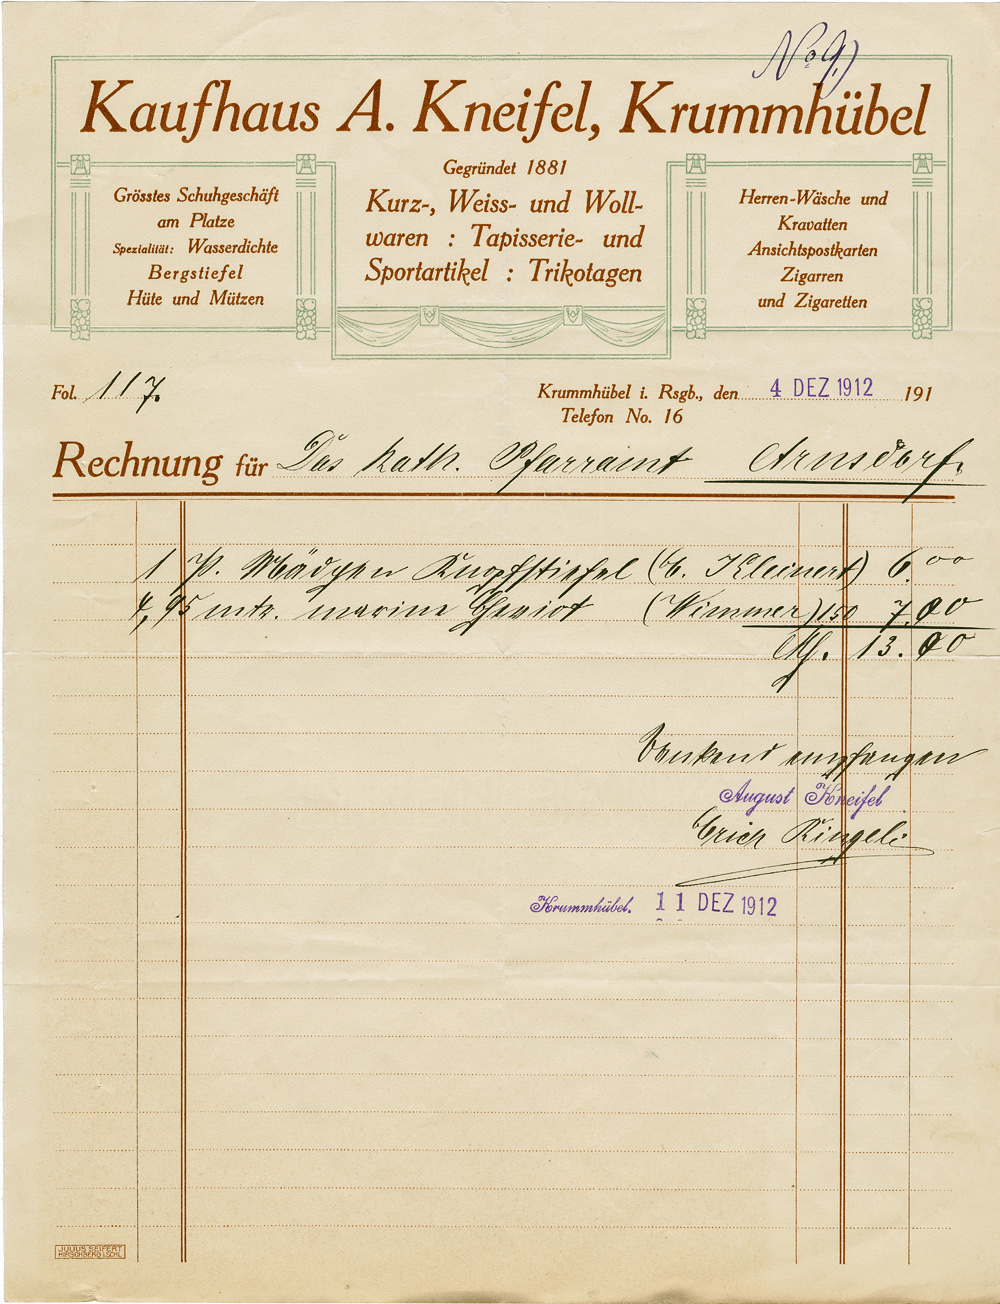 No 9.)
Kaufhaus A. Kneifel, Krummhübel
Grösstes Schuhgeschäft
am Platze
Spezialität: Wasserdichte
Bergstiefel
Hüte und Mützen
Gegründet 1881
Kurz-, Weiss- und Woll-
waren : Tapisserie- und
Sportartikel : Trikotagen
Herren-Wäsche und
Kravatten
Ansichtspostkarten
Zigarren
und Zigaretten
Fol. 117.
Krummhübel i. Rsgb., den 4 DEZ 1912 191
Telefon No. 16
Rechnung für Das kath. Pfarramt Arnsdorf.
1 P. Mädchen Knopfstiefel (b. Kleinert) 6.00
4,95 mtr. marine Cheviot (Wimmer) 150 7.00
M. 13.00
Dankend empfangen
August Kneifel
Erich
Krummhübel. 11 DEZ 1912
JULIUS SEIFERT
HIRSCHBERG i.SCHL.